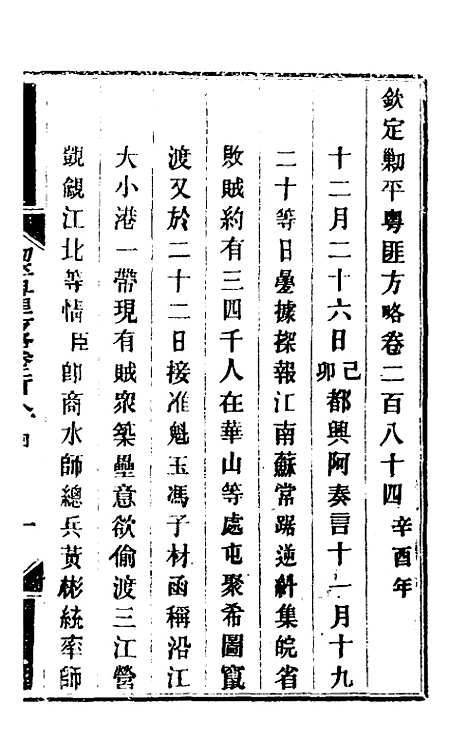 欽定勦平粵匪方略卷二百八十四 辛酉年
十二月二十六日己卯都興阿奏言十一月十九
二十等日疊據探報江南蘇常踞逆糾集皖省
敗賊約有三四千人在華山等處屯聚希圖竄
渡又於二十二日接准魁玉馮子材函稱沿江
大小港一帶現有賊衆築壘意欲偷渡三江營
覬覦江北等情臣卽商水師總兵黃彬統率師